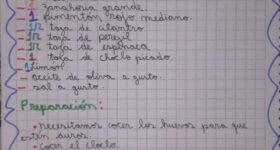 1 zanahoria grande.
1 pimentón rojo mediano.
1/2 taza de cilantro
1/2 taza de perejil
1/2 taza de espinaca
1 taza de choclo picado
1 limón
- aceite de oliva a gusto.
- sal a gusto.
Preparación:
• necesitamos cocer los huevos para que
esten duros.
• cocer el choclo